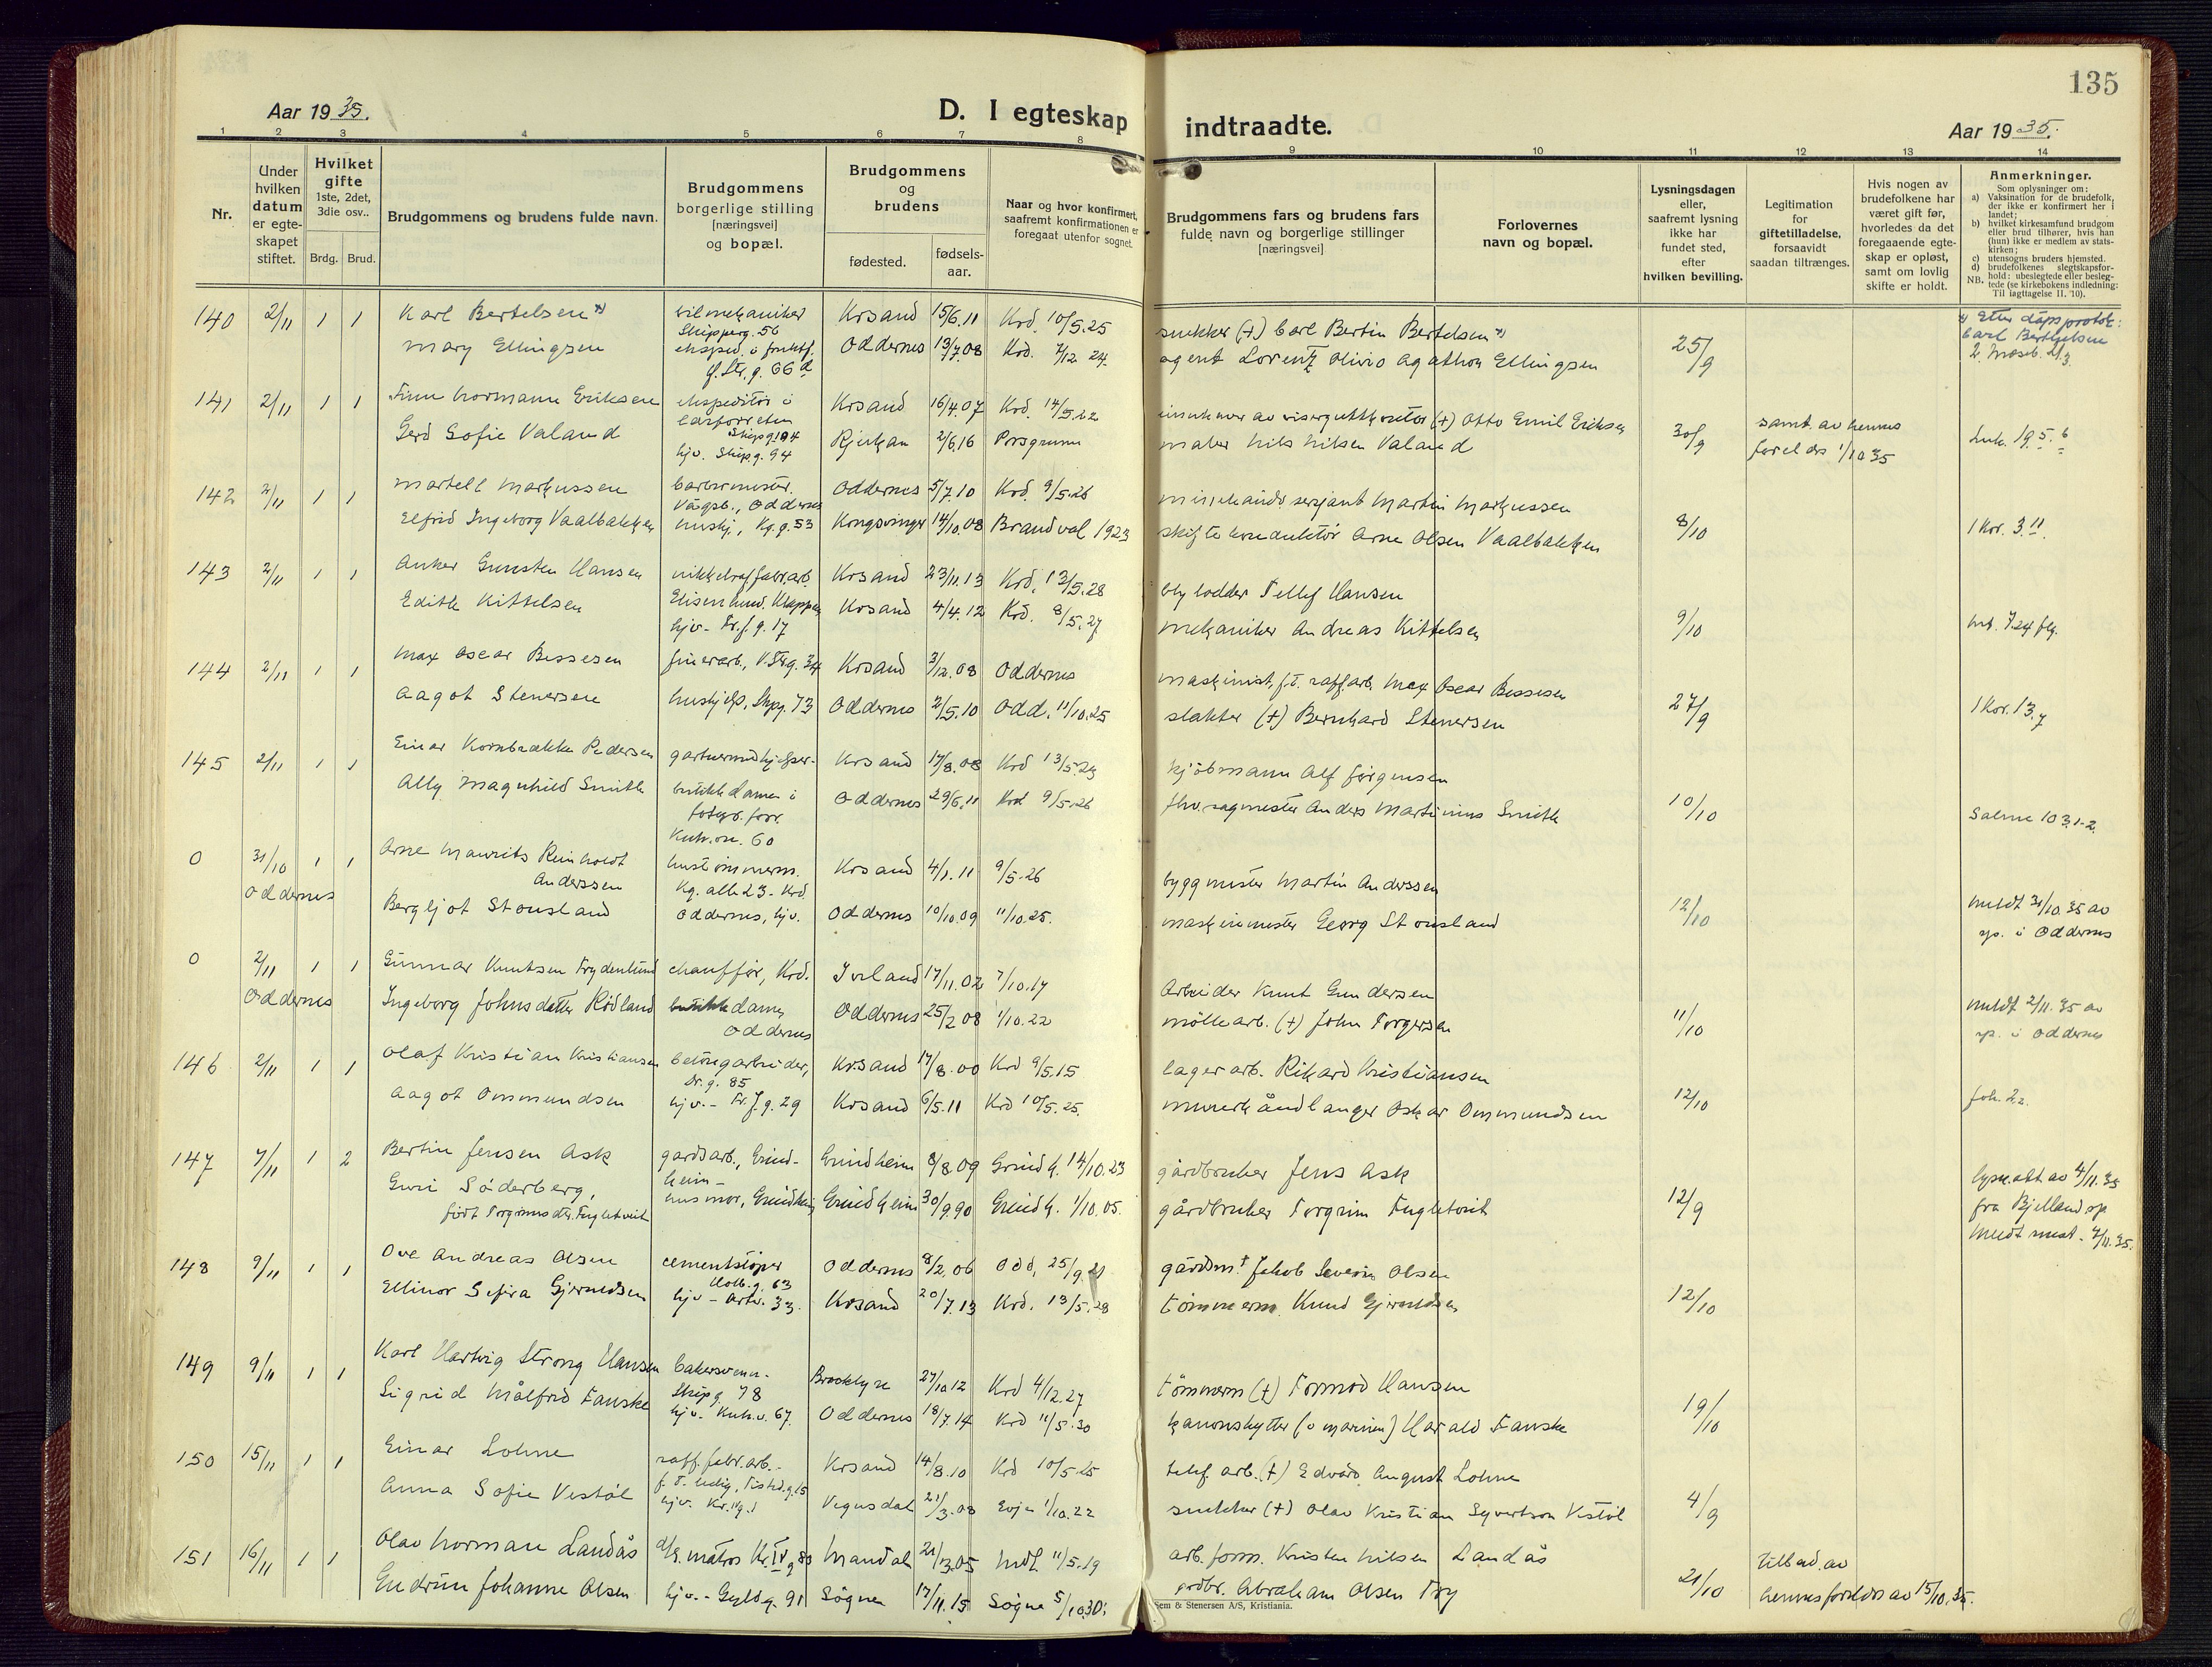 135
Aar 1935.
D. I egteskap indtraadte.
Aar 1935.
1 2 3 4 5 6 7 8 9 10 11 12 13 14
Nr.
Under hvilken datum er egte-skapet stiftet.
Hvilket gifte 1ste, 2det, 3die osv..
Brdg. Brud.
Brudgommens og brudens fulde navn.
Brudgommens borgerlige stilling [næringsvei] og bopæl.
Brudgommens og brudens
fødested. fødsels-aar.
Naar og hvor konfirmert, saafremt konfirmationen er foregaat utenfor sognet.
Brudgommens fars og brudens fars fulde navn og borgerlige stillinger [næringsvei]
Forlovernes navn og bopæl.
Lysningsdagen eller, saafremt lysning ikke har fundet sted, efter hvilken bevilling.
Legitimation for giftetilladelse, forsaavidt saadan tiltrænges.
Hvis nogen av brudefolkene har været gift før, hvorledes da det foregaaende egte-skap er opløst, samt om lovlig skifte er holdt.
Anmerkninger.
Som oplysninger om:
a) Vaksination for de brudefolk, der ikke er konfirmert her i landet;
b) hvilket kirkesamfund brudgom eller brud tilhører, hvis han (hun) ikke er medlem av stats-kirken;
c) utensogns bruders hjemsted.
d) brudefolkenes slegtskapsfor-hold: ubeslegtede eller besleg-tede (se kirkebokens indledning: Til iagttagelse II. '10).
NB.
140 2/11 1 1 Karl Bertelsen x) bilmekaniker Skipperg. 56 Krsand 15/6.11 Krd. 10/5.25 snekker (+) Carl Bertin Bertelsen x) x) Etter dåpsprotok:
Mary Ellingsen eksped. i fruktf. Oddernes 13/7.08 Krd. 7/12 24 agent Lorentz Olivio Agathon Ellingsen 25/9
141 2/11 1 1 Finn Normann Eriksen ekspeditør i Krsand 16/4.07 Krd. 14/5.22 (+) Otto Emil Eriksen samt. av hennes
Gerd Sofie Valand hjv. Skipg. 94 Rjukan 2/6.16 Porsgrunn maler Nils Nilsen Valand 30/9 foreldre 1/10 35 Luk. 19 5.6
142 2/11 1 1 Martell Markussen barbermester. Oddernes 5/7.10 Krd. 9/5.26 sersjant Martin Markussen
Elfrid Ingeborg Vaalbakken hushj., Kg.g. 53 Kongsvinger 14/10.08 Brandval 1923 skiftekonduktør Arne Olsen Vaalbakken 8/10 1 Kor. 3.11.
143 2/11 1 1 Anker Gunsten Hansen nikkelraffabr.arb. Krsand 23/11.13 Krd. 13/5.28 blylodder Tellef Hansen
Edith Kittelsen hjv. - Krsand 4/4.12 Krd. 8/5.27 mekaniker Andreas Kittelsen 9/10 Mt. 7.24 flg.
144 2/11 1 1 Max Oscar Bessesen finerarb., V.Strg. 34 Krsand 3/12.08 Oddernes maskinist, f.t. raff.arb. Max Oscar Bessesen
Aagot Stenersen hushjelp, Skpg. 73 Oddernes 2/5.10 Odd. 11/10.25 slakter (+) Bernhard Stenersen 27/9 1 Kor. 13.7
145 2/11 1 1 Einar Kornbrekke Pedersen gartnermedhjelper- Krsand 17/8.08 Krd 13/5.23 kjøbmann Alf Jørgensen
Ally Magnhild Smith butikkdame i Oddernes 29/6.11 Krd 9/5.26 fhv. sagmester Anders Martinius Smith 10/10 Salme 103.1-2
0 31/10 1 1 Arne Maurits Reinholdt Anderssen hustømmerm. Kg. alle 23 - Krd. Krsand 4/1.11 9/5.26 byggmester Martin Anderssen
Oddernes Bergljot Stousland Oddernes, hjv. Oddernes 10/10.09 11/10.25. maskinmester Georg Stousland 12/10 meldt 31/10.35 av sp. i Oddernes
0 2/11 1 1 Gunnar Knutsen Frydenlund chauffør, Krd. Iveland 17/11.02 7/10.17 Arbeider Knut Gundersen
Oddernes Ingeborg Johnsdatter Rödland butikkdame, Oddernes Oddernes 25/2 08 1/10.22 møllearb. (+) John Torgersen 11/10 meldt 2/11.35 av sp. i Oddernes
146 2/11 1 1 Olaf Kristian Kristiansen betongarbeider, Dr.g. 85 Krsand 17/8.00 Krd 9/5.15 lagerarb. Rikard Kristiansen
Aagot Ommundsen hjv. - 29 Krsand 6/5.11 Krd 10/5.25. murerhåndlanger Oskar Ommundsen 12/10 Joh. 2.2.
147 7/11 1 2 Bertin Jensen Ask gardsarb., Grind-heim- Grindheim 8/8.09 Grindh. 14/10.23 gårdbruker Jens Ask lysn.att av 4/11.35
Guri Söderberg, født Torgrimsdtr. Fugletveit husmor, Grindheim Grindheim 30/9.90 Grindh. 1/10.05. gårdbruker Torgrim Fugletveit 12/9 fra Bjelland sp
148 9/11 1 1 Ove Andreas Olsen cementstøper Holb.g. 63 Oddernes 8/2.06 Odd. 25/9.21 gårdm. + Jakob Severin Olsen
Ellinor Sefira Gjernedsen hjv - Artv. 33. Krsand 20/7.13 Krd. 13/5.28 tømmerm. Knud Gjernedsen 12/10
149 9/11 1 1 Karl Hartvig Strong Hansen bakersvenn - Skipg. 78 Brooklyn 27/10.12 Krd 4/12.27 tømmerm (+) Tormod Hansen
Sigrid Målfrid Fanske hjv. Kuh.v. 67. Oddernes 18/7.14 Krd 11/5.30 kanonskytter (v marinen) Harald Fanske 19/10
150 15/11 1 1 Einar Lohne raff.fabr.arb. - Krsand 14/8.10 Krd 10/5.25 telef. arb. (+) Edvard August Lohne
Anna Sofie Vestøl hjv. Kr.IVg. 1 Vegusdal 21/3.08 Evje 1/10.22 snekker (+) Olav Kristian Syvertson Vestöl 4/9
151 16/11 1 1 Olav Norman Landås d/s. matros Kr. IV g 80 Mandal 21/3.05 Mdl 11/5.19 arb.form. Kristen Nilsen Landås tillad. av
Gudrun Johanne Olsen hjv. - Gyld.g. 91 Søgne 17/11.15 Søgne 5/10.30. grdbr. Abraham Olsen Try 21/10 hennes foreldre av 15/10.35.
Sem & Stenersen A/S, Kristiania.